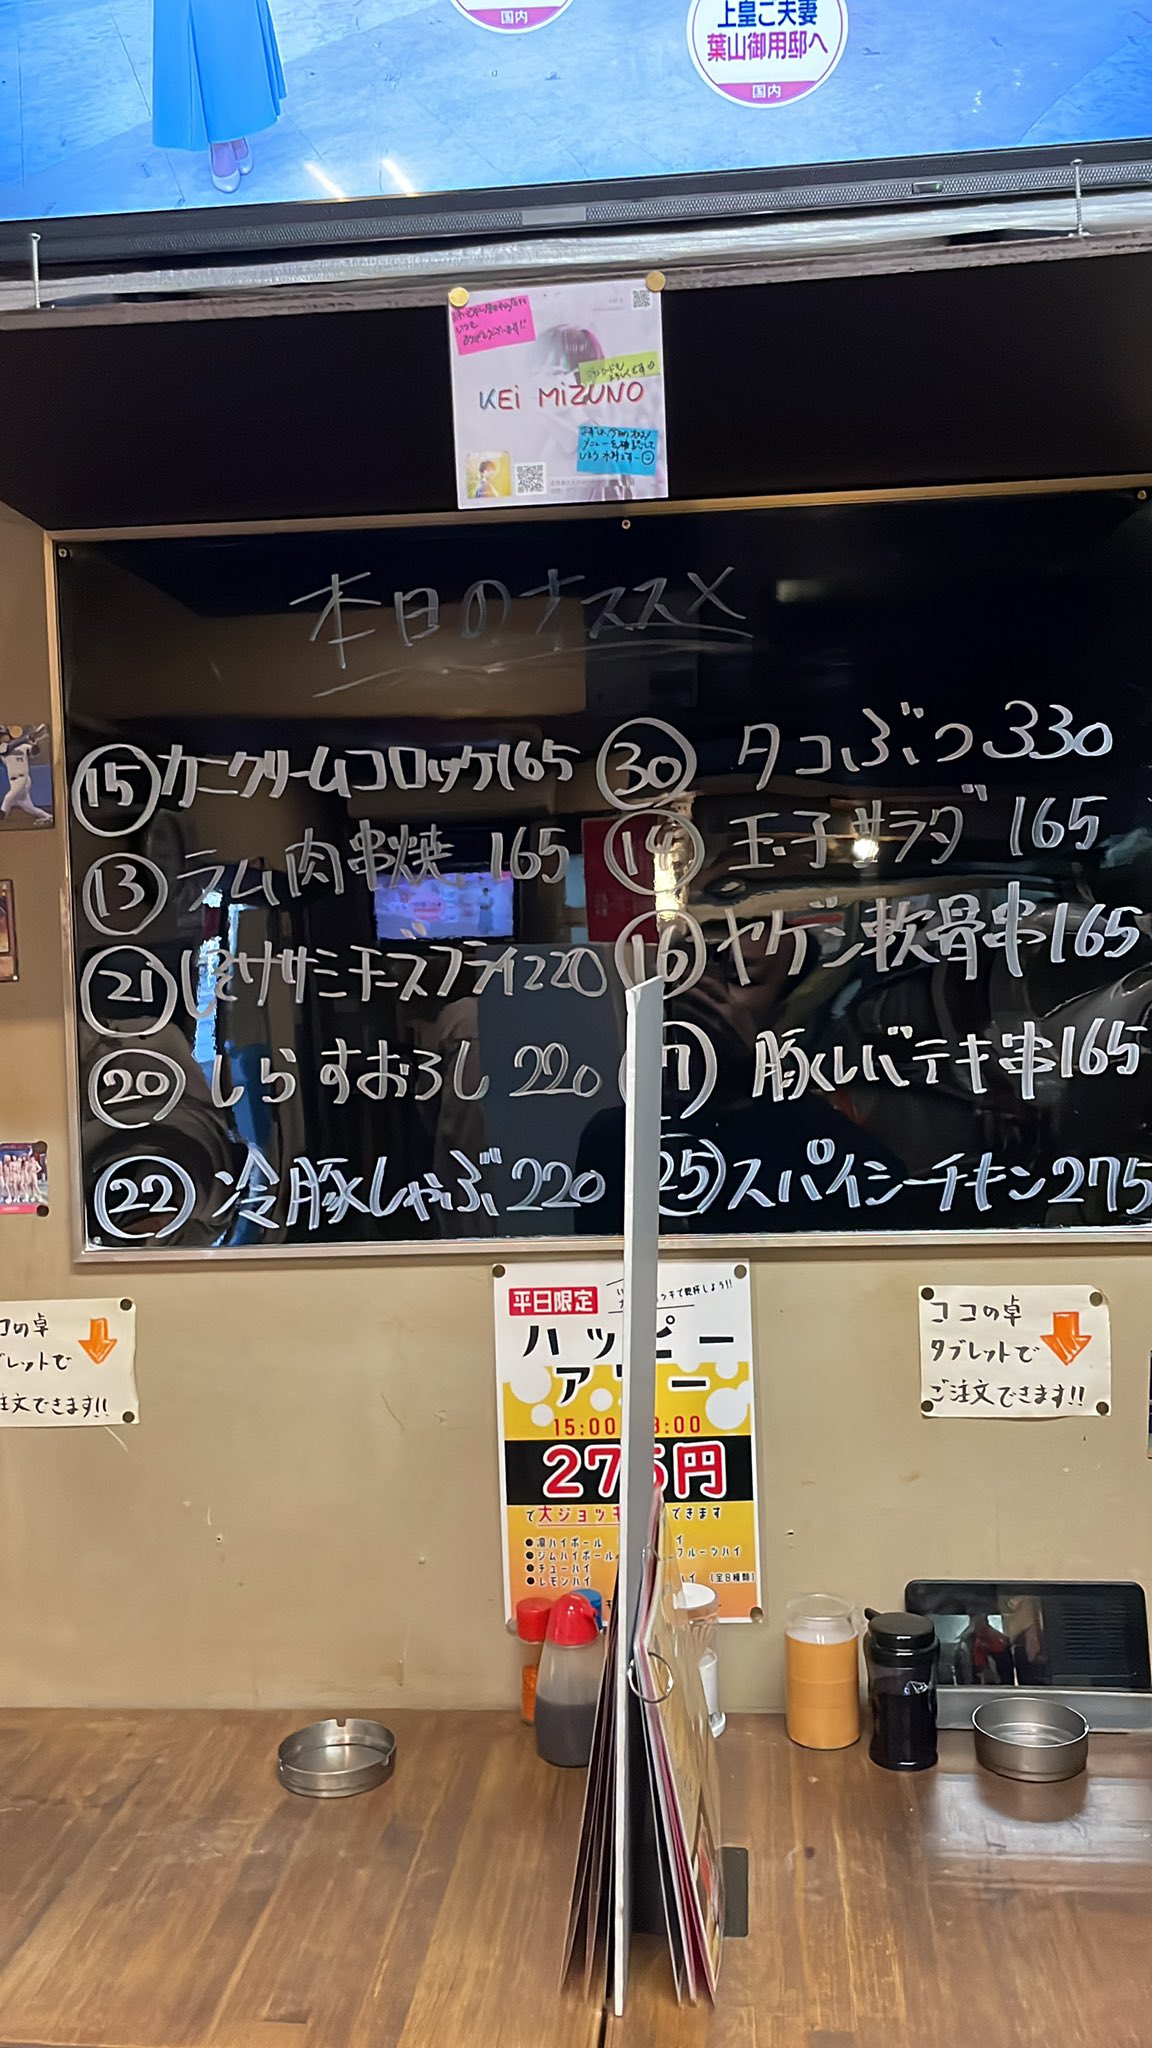 国内
上皇ご夫妻
葉山御用邸へ
国内
いつも
ありがとうございます!!
KEi MiZUNO
本日のオススメ
⑮ カニクリームコロッケ 165
⑬ ラム肉串焼 165
㉑ しそササミチーズフライ 220
⑳ しらすおろし 220
㉒ 冷豚しゃぶ 220
㉚ タコぶつ 330
⑭ 玉子サラダ 165
⑯ ヤゲン軟骨串 165
豚レバテキ串 165
㉕ スパイシーチキン 275
コの卓
ブレットで
注文できます!!
平日限定
で乾杯しよう!!
ハッピー
アワー
15:00
:00
275円
で大ジョッキ
できます
●凛ハイボール
●ジムハイボール
●チューハイ
●レモンハイ
イ
フルーツハイ
レイ (全8種類)
ココの卓
タブレットで
ご注文できます!!